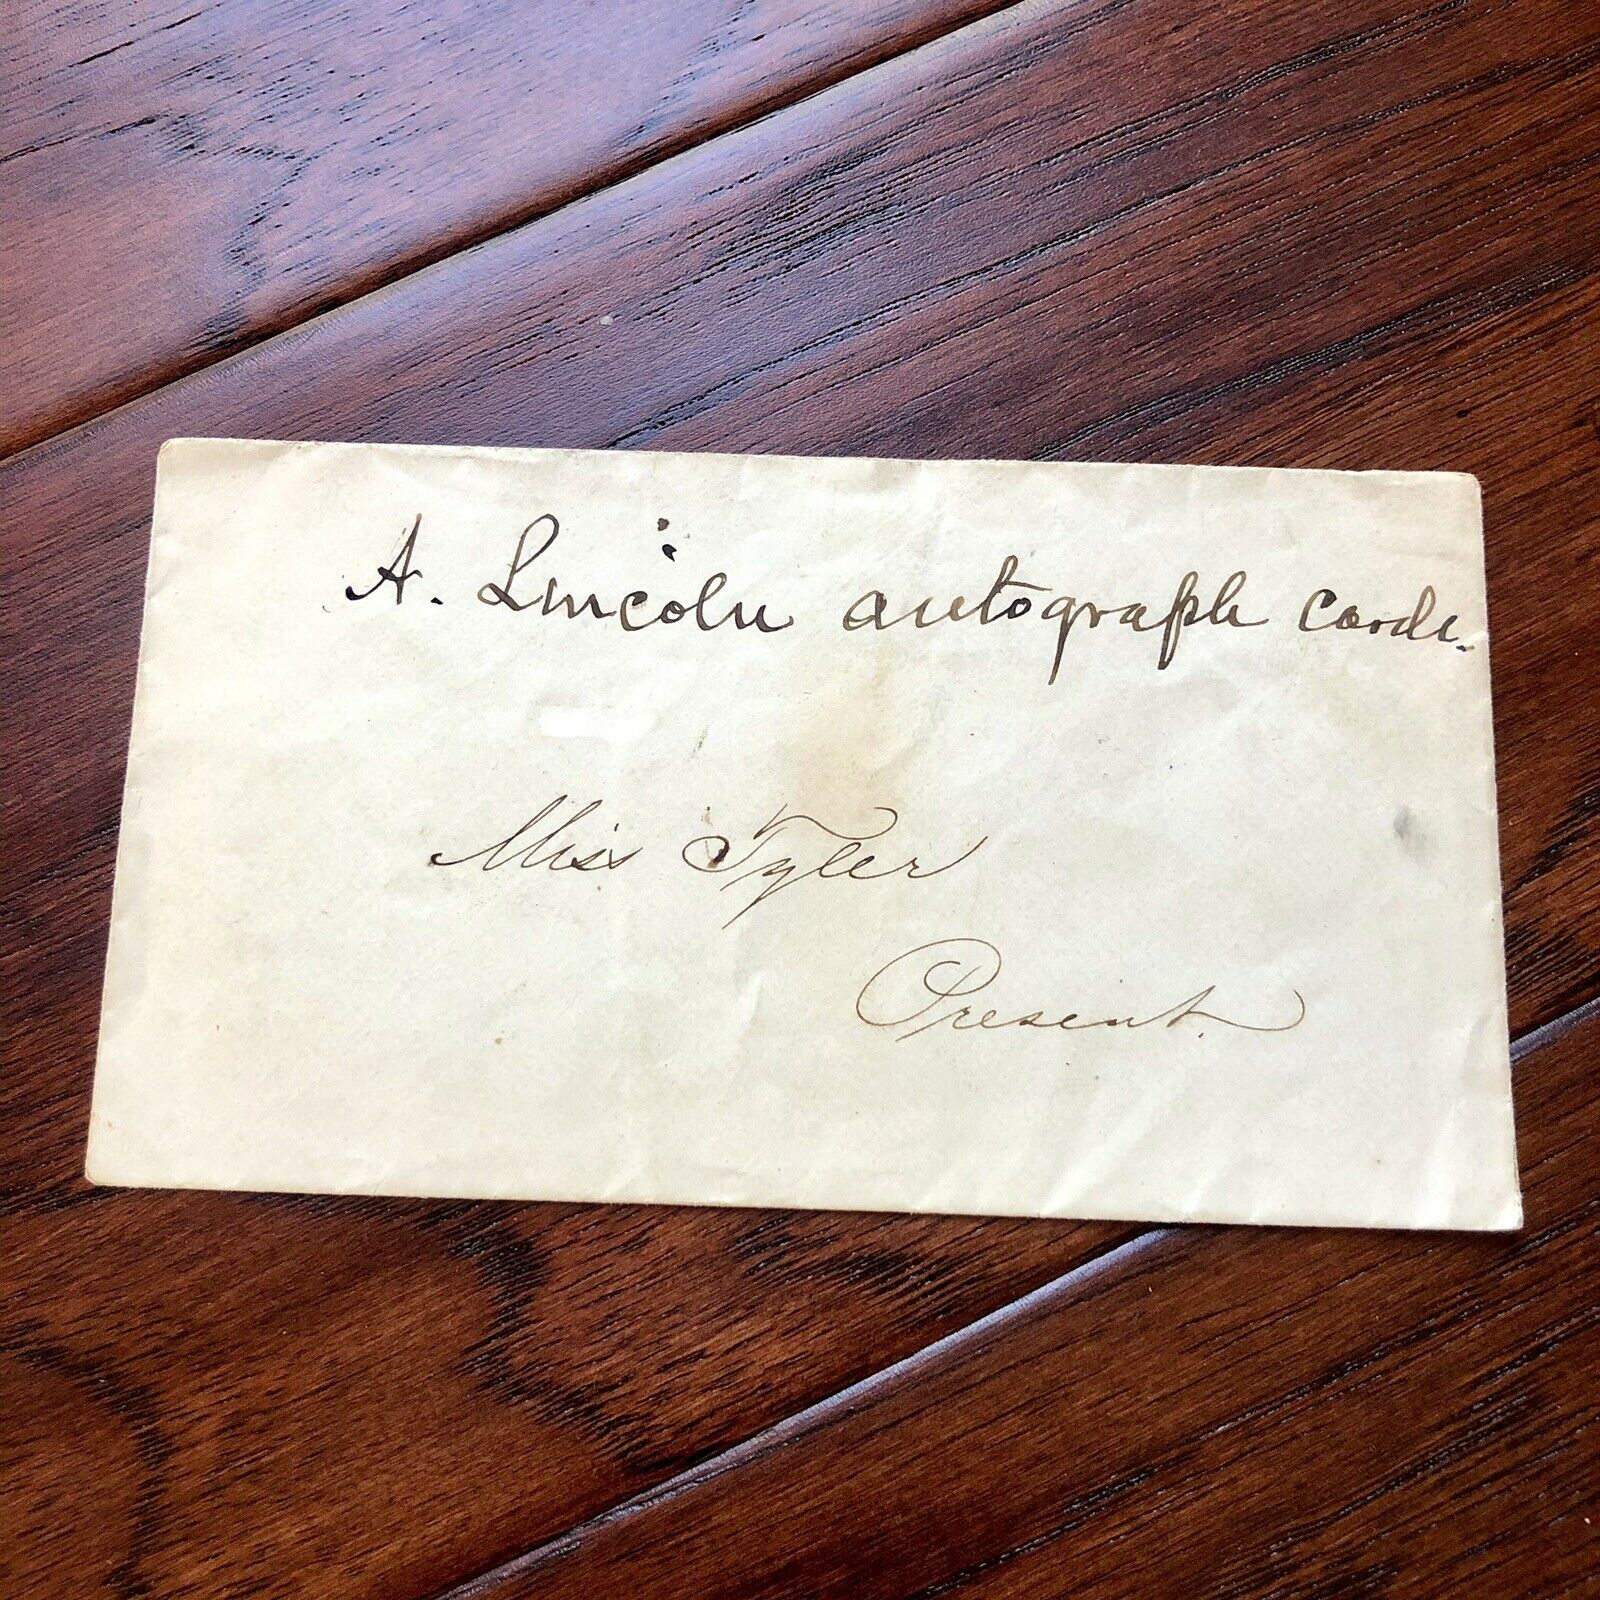 A. Lincoln autograph cards.
Miss Tyler
Present.